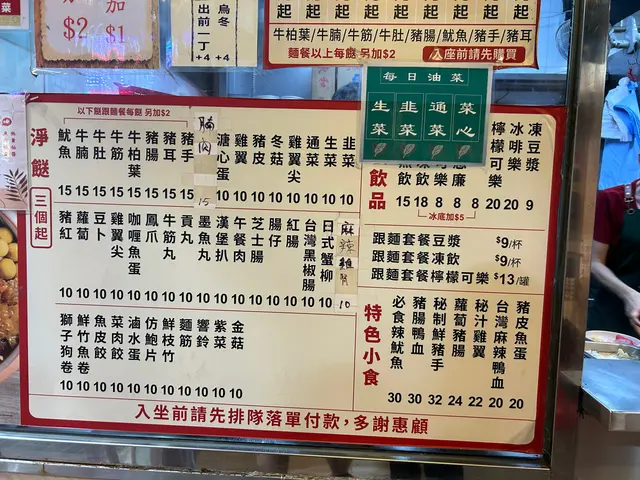 菜
$2
加
$1
出前一丁
+4
烏冬
+4
起 起 起 起 起 起 起 起 起
牛柏葉/牛腩/牛筋/牛肚/豬腸/魷魚/豬手/豬耳
麵餐以上每餸 另加$2
入座前請先購買
每日油菜
生菜
韭菜
通菜
菜心
淨餸
三個起
以下餸跟麵餐每餸 另加$2
魷魚 15
牛腩 15
牛肚 15
牛筋 15
牛柏葉 15
豬腸 15
豬耳 15
豬手 15
腩肉 15
溏心蛋 10
雞翼 10
豬皮 10
冬菇 10
雞翼尖 10
通菜 10
生菜 10
韭菜 10
豬紅 10
蘿蔔 10
豆卜 10
雞翼尖 10
咖喱魚蛋 10
鳳爪 10
牛筋丸 10
貢丸 10
墨魚丸 10
漢堡扒 10
午餐肉 10
芝士腸 10
腸仔 10
紅腸 10
台灣黑椒腸 10
日式蟹柳 10
麻辣雞腎 10
獅子狗魚卷 10
鮮竹卷 10
魚皮餃 10
菜肉餃 10
滷水蛋 10
仿鮑片 10
鮮枝竹 10
麵筋 10
響鈴 10
紫菜 10
金菇 10
飲品
飲 15
飲 18
可樂 8
8
廉 8
檸檬可樂 20
冰啡樂 20
凍豆漿 9
冰底加$5
跟麵套餐豆漿 $9/杯
跟麵套餐凍飲 $9/杯
跟麵套餐檸檬可樂 $13/罐
特色小食
必食辣魷魚 30
豬腸豬魚蛋 30
秘制鮮豬手 32
蘿蔔豬腸 24
秘汁雞翼 22
台灣麻辣鴨血 20
豬皮魚蛋 20
入坐前請先排隊落單付款，多謝惠顧